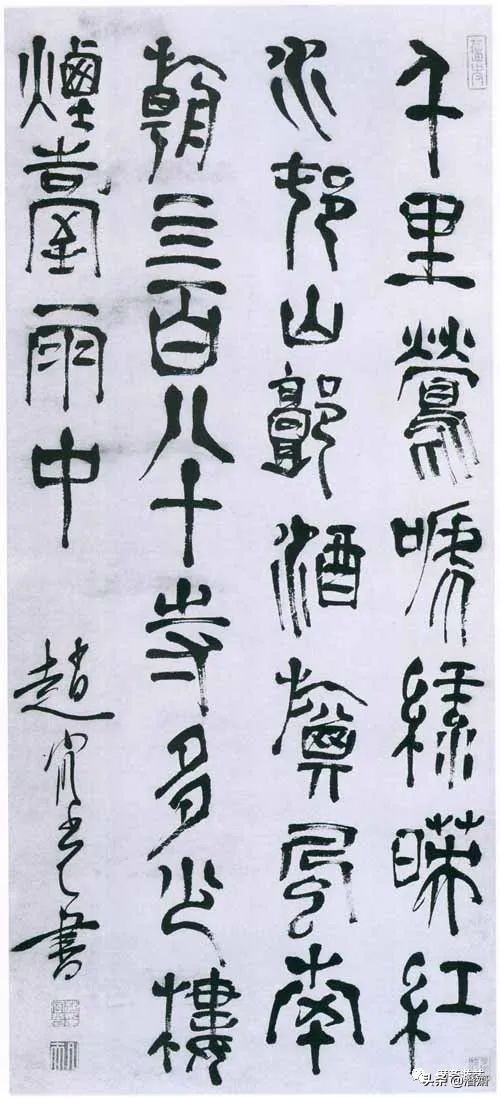 千里鶯嗁綠暎紅
水邨山郭酒旗風南
朝三百八十寺多少樓
煙臺雨中
趙宧光書
头条